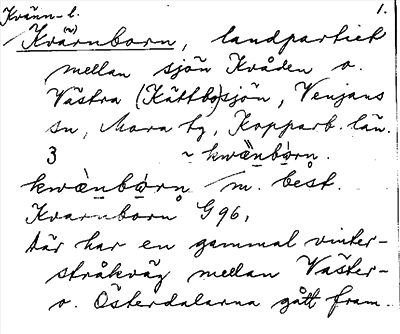 Kvänn- l. 1.
Kvarnborn, landpartiet
(n)
mellan sjön Kvåden o.
Västra (Kättbo)sjön, Venjans
sn, Mora tg, Kopparb. län.
3 ~ kwä̀nbǫrn.
kwä̀nbǫ́rn m. båst.
Kvarnborn G96,
där har en gammal vinter-
stråkväg mellan Väster-
o. Österdalarna gått fram.